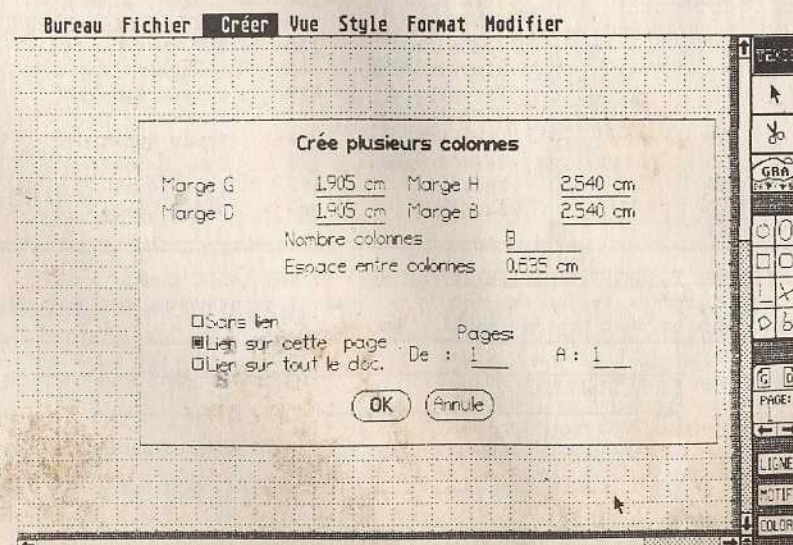 Bureau Fichier Créer Vue Style Format Modifier
Crée plusieurs colonnes
Marge G 1.905 cm Marge H 2.540 cm
Marge D 1.905 cm Marge B 2.540 cm
Nombre colonnes
Espace entre colonnes 0.635 cm
Sans lien
Lien sur cette page
Lien sur tout le doc.
Pages:
De : 1 A : 1
OK Annule
GRA
PAGE:
LIGNE
MOTIF
COLOR